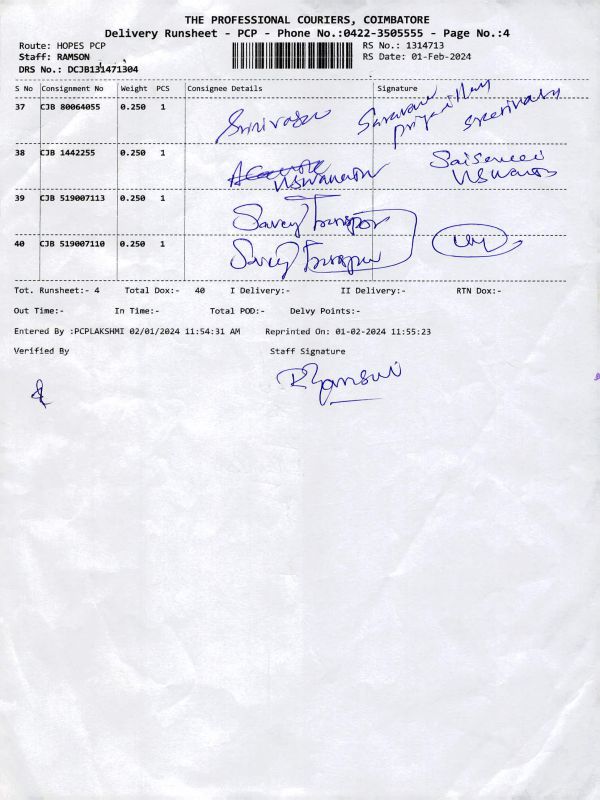 THE PROFESSIONAL COURIERS, COIMBATORE
Delivery Runsheet - PCP - Phone No.:0422-3505555 - Page No.:4
Route: HOPES PCP RS No.: 1314713
Staff: RAMSON RS Date: 01-Feb-2024
DRS No.: DCJB131471304
S No Consignment No Weight PCS Consignee Details Signature
37 CJB 80064055 0.250 1 Srinivasan
38 CJB 1442255 0.250 1
39 CJB 519007113 0.250 1
40 CJB 519007110 0.250 1
Tot. Runsheet:- 4 Total Dox:- 40 I Delivery:- II Delivery:- RTN Dox:-
Out Time:- In Time:- Total POD:- Delvy Points:-
Entered By :PCPLAKSHMI 02/01/2024 11:54:31 AM Reprinted On: 01-02-2024 11:55:23
Verified By Staff Signature